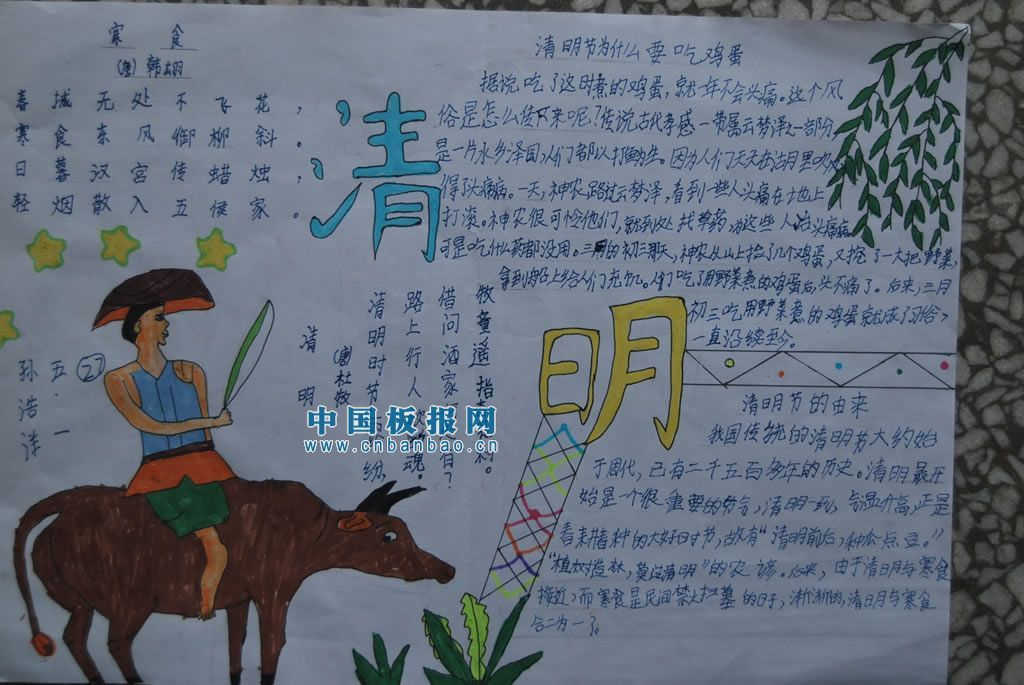 寒食
(唐)韩翃
春城无处不飞花，
寒食东风御柳斜。
日暮汉宫传蜡烛，
轻烟散入五侯家。
清
明
清明节为什么要吃鸡蛋
据说吃了这时煮的鸡蛋，就一年不会头痛。这个风
俗是怎么传下来呢？传说古代孝感一带属云梦泽之一部分
是一片水乡泽国，人们都以打鱼为生。因为人们天天在湖里
得了头痛病。一天，神农路过云梦泽，看到一些人头痛在地上
打滚。神农很可怜他们，就到处找草药为这些人治头痛病
可是吃什么药都没用。三月的初三那天，神农从山上捡了几个鸡蛋，又挖了一大把野菜，
拿到给人们充饥。人们吃了用野菜煮的鸡蛋后，头不痛了。后来，三月
初三吃用野菜煮的鸡蛋就成了习俗，
一直沿续至今。
清明
(唐)杜牧
清明时节纷，
路上行人魂。
借问酒家有？
牧童遥指村。
五·一
27
孙浩洋
中国板报网
www.cnbanbao.cn
清明节的由来
我国传统的清明节大约始
于周代，已有二千五百多年的历史。清明最开
始是一个很重要的节气，清明一到，气温升高，正是
春耕春种的大好时节，故有“清明前后，种瓜点豆。”
“植树造林，莫过清明”的农谚。后来，由于清明与寒食
接近，而寒食是民间禁火扫墓的日子，渐渐的，清明与寒食
合二为一了。